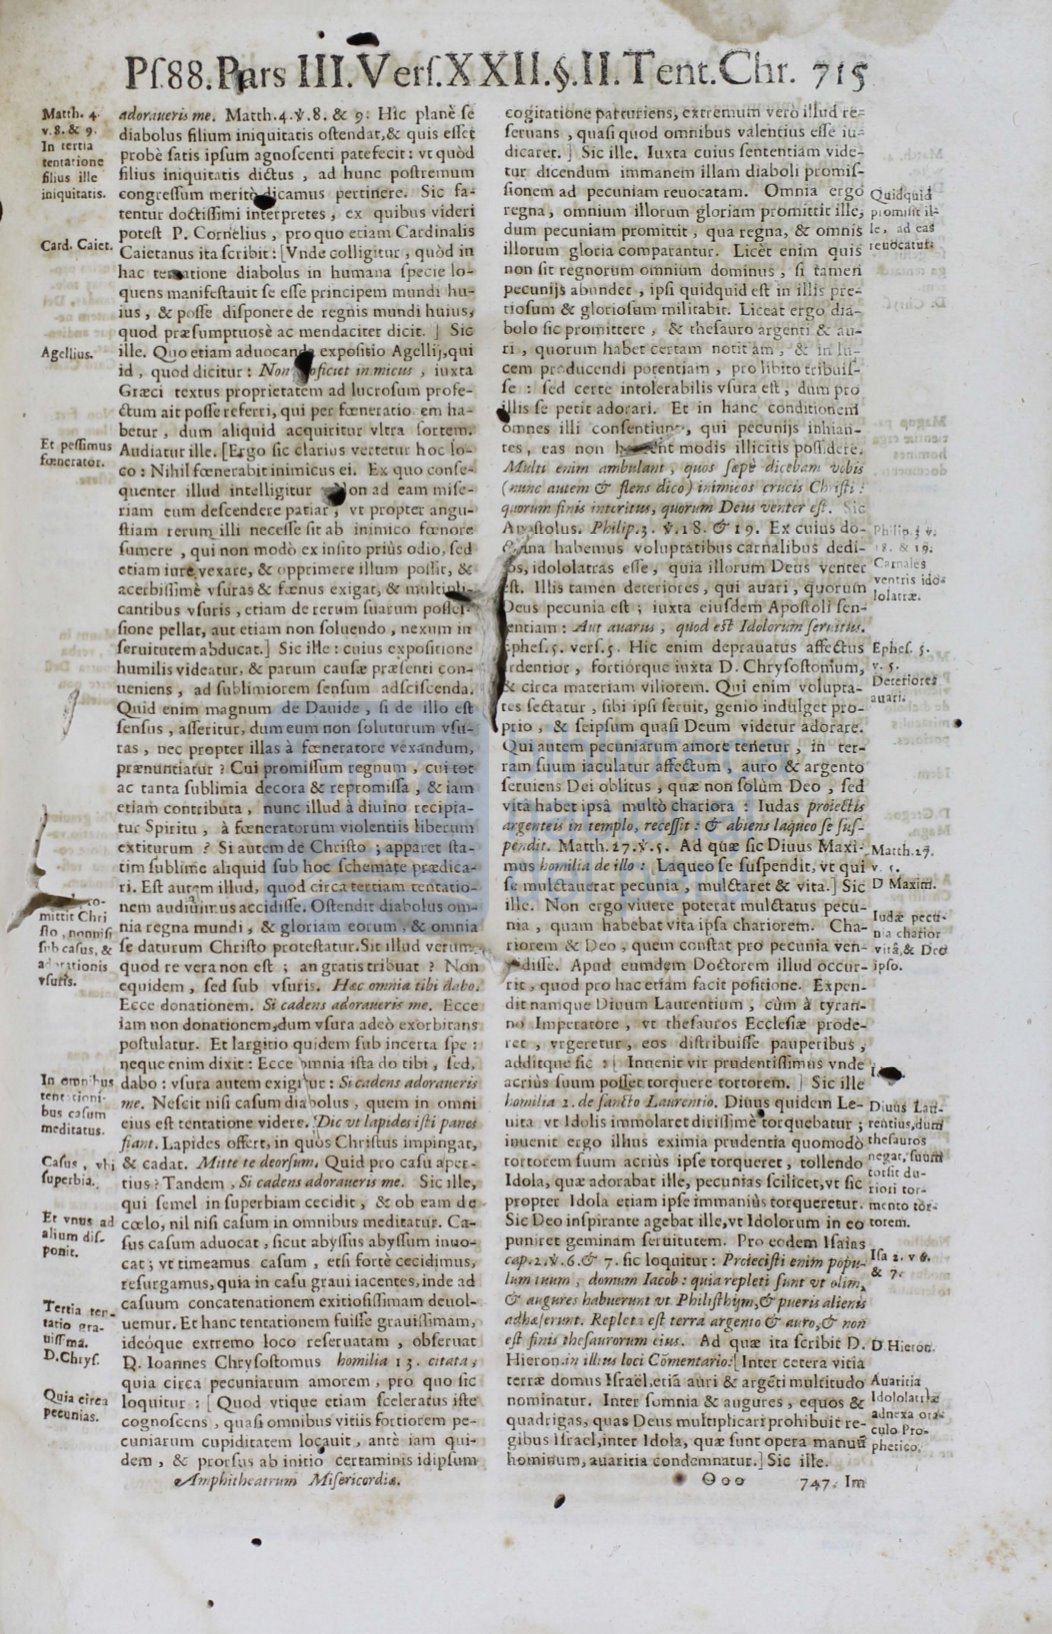 Pſ.88. Pars III. Verſ. XXII. §. II. Tent. Chr. 715
Matth. 4.
v. 8. & 9.
In tertia
tentatione
filius ille
iniquitatis.
Card. Caiet.
Agellius.
Et peſſimus
fœnerator.
mittit Chri
ſto, nonniſi
ſub caſus, &
adorationis
vſuris.
In omnibus
tentationi-
bus caſum
meditatus.
Caſus, vbi
ſuperbia.
Et vnus ad
alium diſ-
ponit.
Tertia ten-
tatio gra-
uiſſma.
D. Chryſ.
Quia circa
pecunias.
adoraueris me. Matth. 4. v. 8. & 9. Hìc planè ſe
diabolus filium iniquitatis oſtendat, & quis eſſet
probè ſatis ipſum agnoſcenti patefecit: vt quòd
filius iniquitatis dictus, ad hunc poſtremum
congreſſum meritò dicamus pertinere. Sic fa-
tentur doctiſſimi interpretes, ex quibus videri
poteſt P. Cornelius, pro quo etiam Cardinalis
Caietanus ita ſcribit: [Vnde colligitur, quòd in
hac tentatione diabolus in humana ſpecie lo-
quens manifeſtauit ſe eſſe principem mundi hu-
ius, & poſſe diſponere de regnis mundi huius,
quod præſumptuosè ac mendaciter dicit.] Sic
ille. Quo etiam aduocanda expoſitio Agellij, qui
id, quod dicitur: Non proficiet inimicus, iuxta
Græci textus proprietatem ad lucroſum profe-
ctum ait poſſe referri, qui per fœneratio em ha-
betur, dum aliquid acquiritur vltra ſortem.
Audiatur ille. [Ergo ſic clariùs vertetur hoc lo-
co: Nihil fœnerabit inimicus ei. Ex quo conſe-
quenter illud intelligitur non ad eam miſe-
riam eum deſcendere patiar, vt propter angu-
ſtiam rerum illi neceſſe ſit ab inimico fœnore
ſumere, qui non modò ex inſito priùs odio, ſed
etiam iure vexare, & opprimere illum poſſit, &
acerbiſſimè vſuras & fœnus exigat, & multipli-
cantibus vſuris, etiam de rerum ſuarum poſſeſ-
ſione pellat, aut etiam non ſoluendo, nexum in
ſeruitutem abducat.] Sic ille: cuius expoſitione
humilis videatur, & parum cauſæ præſenti con-
ueniens, ad ſublimiorem ſenſum adſciſcenda.
Quid enim magnum de Dauide, ſi de illo eſt
ſenſus, aſſeritur, dum eum non ſoluturum vſu-
ras, nec propter illas à fœneratore vexandum,
prænuntiatur? Cui promiſſum regnum, cui tot
ac tanta ſublimia decora & repromiſſa, & iam
etiam contributa, nunc illud à diuino recipia-
tur Spiritu, à fœneratorum violentiis liberum
extiturum? Si autem de Chriſto; apparet ſta-
tim ſublime aliquid ſub hoc ſchemate prædica-
ri. Eſt autem illud, quod circa tertiam tentatio-
nem audiuimus accidiſſe. Oſtendit diabolus om-
nia regna mundi, & gloriam eorum, & omnia
ſe daturum Chriſto proteſtatur. Sit illud verum,
quod re vera non eſt; an gratis tribuat? Non
equidem, ſed ſub vſuris. Hæc omnia tibi dabo.
Ecce donationem. Si cadens adoraueris me. Ecce
iam non donationem, dum vſura adeò exorbitans
poſtulatur. Et largitio quidem ſub incerta ſpe:
neque enim dixit: Ecce omnia iſta do tibi, ſed,
dabo: vſura autem exigitur: Si cadens adoraueris
me. Neſcit niſi caſum diabolus, quem in omni
eius eſt tentatione videre. Dic vt lapides iſti panes
fiant. Lapides offert, in quos Chriſtus impingat,
& cadat. Mitte te deorſum. Quid pro caſu aper-
tius? Tandem, Si cadens adoraueris me. Sic ille,
qui ſemel in ſuperbiam cecidit, & ob eam de
cœlo, nil niſi caſum in omnibus meditatur. Ca-
ſus caſum aduocat, ſicut abyſſus abyſſum inuo-
cat; vt timeamus caſum, etſi fortè cecidimus,
reſurgamus, quia in caſu graui iacentes, inde ad
caſuum concatenationem exitioſiſſimam deuol-
uemur. Et hanc tentationem fuiſſe grauiſſimam,
ideóque extremo loco reſeruatam, obſeruat
D. Ioannes Chryſoſtomus homilia 13. citata,
quia circa pecuniarum amorem, pro quo ſic
loquitur: [Quod vtique etiam ſceleratus iſte
cognoſcens, quaſi omnibus vitiis fortiorem pe-
cuniarum cupiditatem locauit, antè iam qui-
dem, & prorſus ab initio certaminis idipſum
Amphitheatrum Miſericordiæ.
cogitatione parturiens, extremum verò illud re-
ſeruans, quaſi quod omnibus valentius eſſe iu-
dicaret.] Sic ille. Iuxta cuius ſententiam vide-
tur dicendum immanem illam diaboli promiſ-
ſionem ad pecuniam reuocatam. Omnia ergo
regna, omnium illorum gloriam promittit ille,
dum pecuniam promittit, qua regna, & omnis
illorum gloria comparantur. Licèt enim quis
non ſit regnorum omnium dominus, ſi tamen
pecunijs abundet, ipſi quidquid eſt in illis pre-
tioſum & glorioſum militabit. Liceat ergo dia-
bolo ſic promittere, & theſauro argenti & au-
ri, quorum habet certam notitiam, & in lu-
cem producendi potentiam, pro libito tribuiſ-
ſe: ſed certe intolerabilis vſura eſt, dum pro
illis ſe petit adorari. Et in hanc conditionem
omnes illi conſentiunt, qui pecunijs inhian-
tes, eas non modis illicitis poſſidere.
Multi enim ambulant, quos ſæpè dicebam vobis
(nunc autem & flens dico) inimicos crucis Chriſti:
quorum finis interitus, quorum Deus venter eſt. Sic
Apoſtolus. Philip. 3. v. 18. & 19. Ex cuius do-
ctrina habemus voluptatibus carnalibus dedi-
tos, idololatras eſſe, quia illorum Deus venter
eſt. Illis tamen deteriores, qui auari, quorum
Deus pecunia eſt; iuxta eiuſdem Apoſtoli ſen-
tentiam: Aut auarus, quod eſt Idolorum ſeruitus.
Epheſ. 5. verſ. 5. Hic enim deprauatus affectus
ardentior, fortiórque iuxta D. Chryſoſtomum,
& circa materiam viliorem. Qui enim volupta-
tes ſectatur, ſibi ipſi ſeruit, genio indulget pro-
prio, & ſeipſum quaſi Deum videtur adorare.
Qui autem pecuniarum amore tenetur, in ter-
ram ſuum iaculatur affectum, auro & argento
ſeruiens Dei oblitus, quæ non ſolùm Deo, ſed
vitâ habet ipsâ multò chariora: Iudas proiectis
argenteis in templo, receſſit: & abiens laqueo ſe ſuſ-
pendit. Matth. 27. v. 5. Ad quæ ſic Diuus Maxi-
mus homilia de illo: Laqueo ſe ſuſpendit, vt qui
ſe mulctauerat pecunia, mulctaret & vita.] Sic
ille. Non ergo viuere poterat mulctatus pecu-
nia, quam habebat vita ipſa chariorem. Cha-
riorem & Deo, quem conſtat pro pecunia ven-
didiſſe. Apud eumdem Doctorem illud occur-
rit, quod pro hac etiam facit poſitione. Expen-
dit namque Diuum Laurentium, cùm à tyran-
no Imperatore, vt theſauros Eccleſiæ prode-
ret, vrgeretur, eos diſtribuiſſe pauperibus,
additque ſic: [Inuenit vir prudentiſſimus vnde
acriùs ſuum poſſet torquere tortorem.] Sic ille
homilia 2. de ſancto Laurentio. Diuus quidem Le-
uita vt Idolis immolaret diriſſimè torquebatur;
inuenit ergo illius eximia prudentia quomodò
tortorem ſuum acriùs ipſe torqueret, tollendo
Idola, quæ adorabat ille, pecunias ſcilicet, vt ſic
propter Idola etiam ipſe immaniùs torqueretur.
Sic Deo inſpirante agebat ille, vt Idolorum in eo
puniret geminam ſeruitutem. Pro eodem Iſaias
cap. 2. v. 6. & 7. ſic loquitur: Proieciſti enim popu-
lum tuum, domum Iacob: quia repleti ſunt vt olim,
& augures habuerunt vt Philiſthijm, & pueris alienis
adhæſerunt. Repleta eſt terra argento & auro, & non
eſt finis theſaurorum eius. Ad quæ ita ſcribit D.
Hieron. in illius loci Cōmentario: [Inter cetera vitia
terræ domus Iſraël, etiā auri & argēti multitudo
nominatur. Inter ſomnia & augures, equos &
quadrigas, quas Deus multiplicari prohibuit re-
gibus Iſrael, inter Idola, quæ ſunt opera manuū
hominum, auaritia condemnatur.] Sic ille.
Ooo 747. Im
Quidquid
promiſit il-
le, ad eas
reuocatur.
Philip. 3 v.
18. & 19.
Carnales
ventris ido-
lolatræ.
Epheſ. 5.
v. 5.
Deteriores
auari.
Matth. 27.
v. 5.
D Maxim.
Iudæ pecu-
nia charior
vitâ, & Deo
ipſo.
Diuus Lau-
rentius, dum
theſauros
negat, ſuum
torſit du-
riori tor-
mento tor-
torem.
Iſa 2. v 6.
& 7.
D. Hieron.
Auaritia
Idololatriæ
adnexa ora-
culo Pro-
phetico.